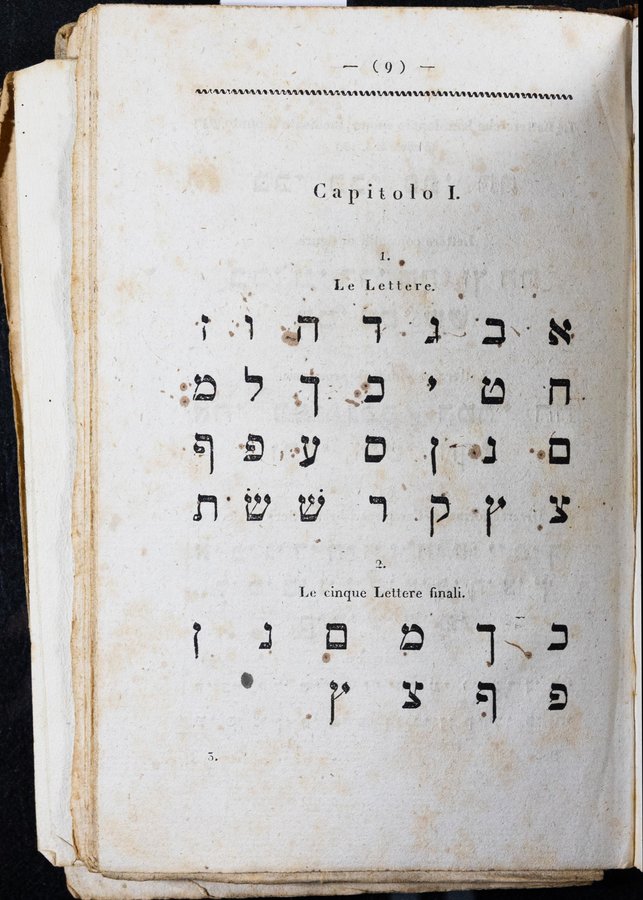 — (9) —
Capitolo I.
1.
Le Lettere.
א ב ג ד ה ו ז
ח ט י כ ך ל מ
ם נ ן ס ע פ ף
צ ץ ק ר שׁ שׂ ת
2.
Le cinque Lettere finali.
כ ך מ ם נ ן
פ ף צ ץ
3.